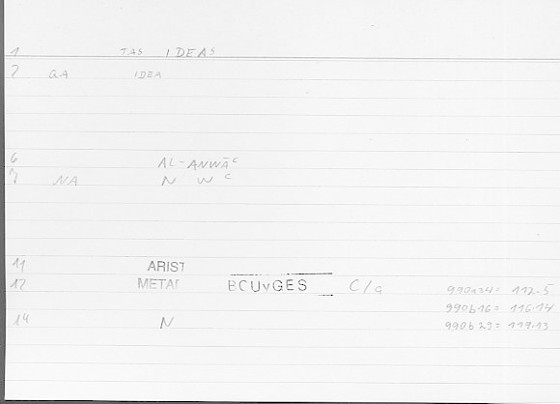 1 TAS IDEAS
2 GA IDEA
6 AL-ANWĀʿ
7 NA N W ʿ
11 ARIST
12 METAP BOUyGES C/a 990a24= 112.5
990b16= 116.14
14 N 990b29= 119.13